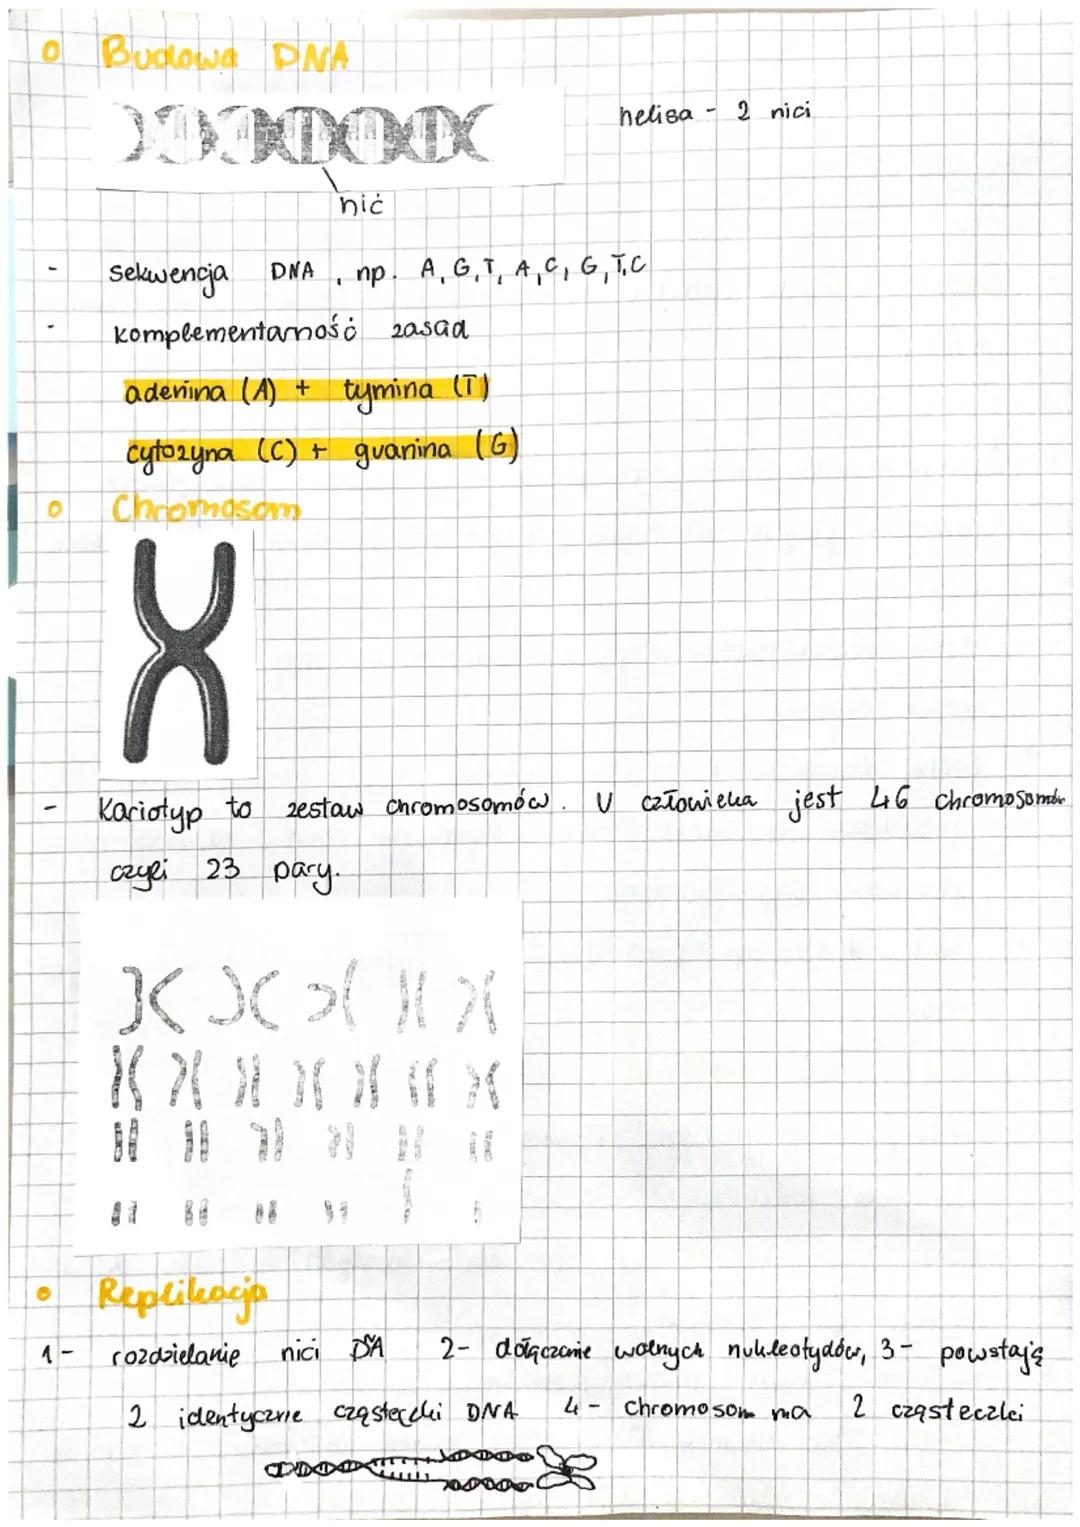 Budowa DNA
helisa - 2 nici
nić
- sekwencja DNA, np. A, G, T, A, C, G, T, C
- komplementarność zasad
adenina (A) + tymina (T)
cytozyna (C) + guanina (G)
Chromosom
- Kariotyp to zestaw chromosomów. U człowieka jest 46 chromosomów
czyli 23 pary.
Replikacja
1- rozdzielanie nici DNA 2- dołączanie wolnych nukleotydów, 3- powstają
2 identyczne cząsteczki DNA 4- chromosom ma 2 cząsteczki